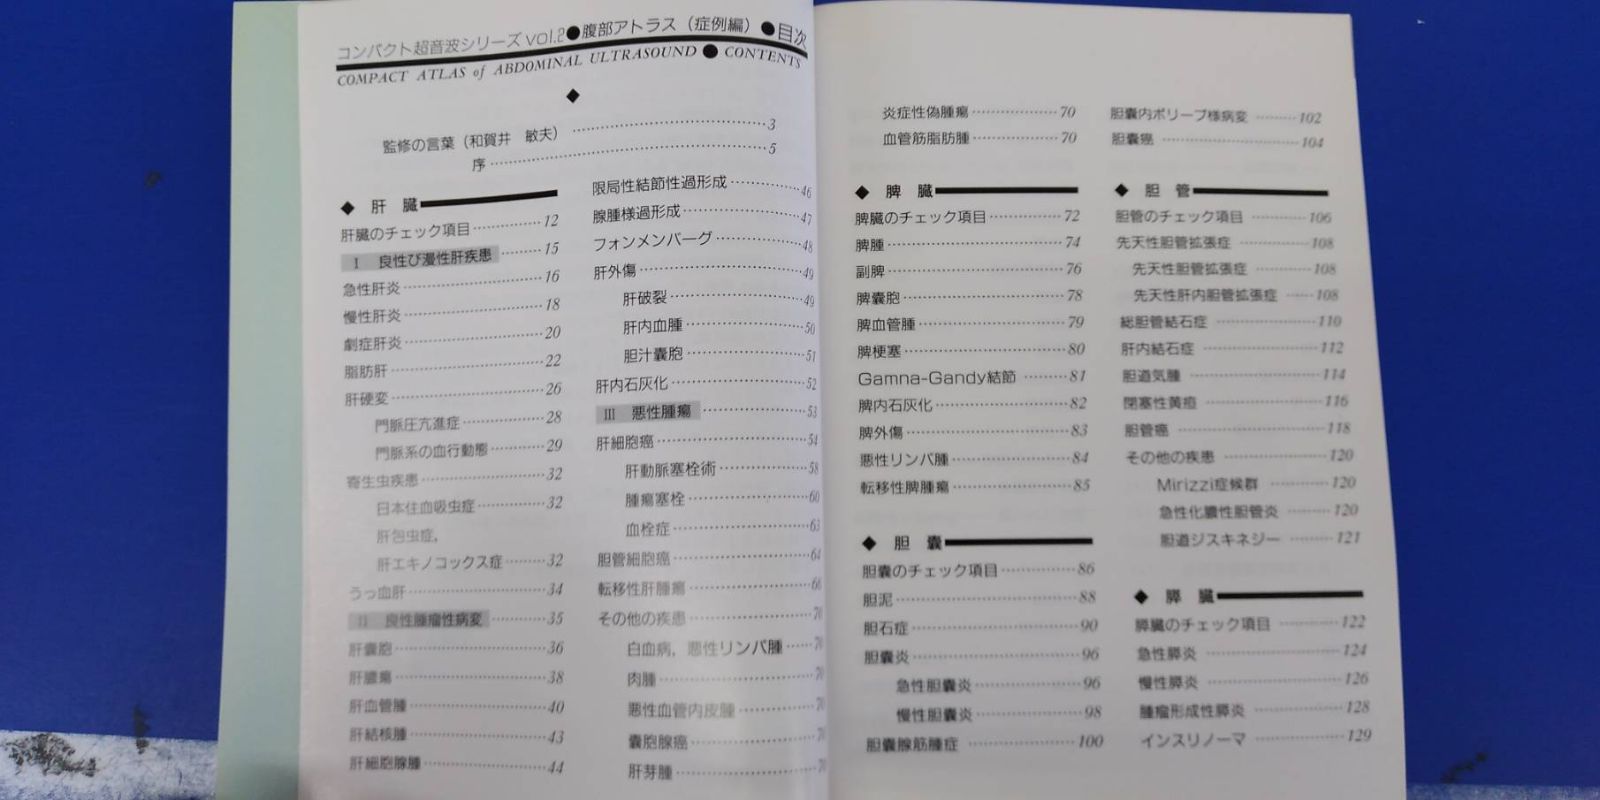 コンパクト超音波シリーズ vol.2●腹部アトラス（症例編）●目次
COMPACT ATLAS of ABDOMINAL ULTRASOUND ● CONTENTS
◆
監修の言葉（和賀井　敏夫）…………3
序…………5
◆ 肝　臓
肝臓のチェック項目…………12
Ⅰ　良性び漫性肝疾患…………15
急性肝炎…………16
慢性肝炎…………18
劇症肝炎…………20
脂肪肝…………22
肝硬変…………26
門脈圧亢進症…………28
門脈系の血行動態…………29
寄生虫疾患…………32
日本住血吸虫症…………32
肝包虫症，
肝エキノコックス症…………32
うっ血肝…………34
Ⅱ　良性腫瘤性病変…………35
肝嚢胞…………36
肝膿瘍…………38
肝血管腫…………40
肝結核腫…………43
肝細胞腺腫…………44
限局性結節性過形成…………46
腺腫様過形成…………47
フォンメンバーグ…………48
肝外傷…………49
肝破裂…………49
肝内血腫…………50
胆汁嚢胞…………51
肝内石灰化…………52
Ⅲ　悪性腫瘍…………53
肝細胞癌…………54
肝動脈塞栓術…………58
腫瘍塞栓…………60
血栓症…………63
胆管細胞癌…………64
転移性肝腫瘍…………66
その他の疾患…………70
白血病，悪性リンパ腫……70
肉腫…………70
悪性血管内皮腫…………70
嚢胞腺癌…………70
肝芽腫…………70
炎症性偽腫瘍…………70
血管筋脂肪腫…………70
◆ 脾　臓
脾臓のチェック項目…………72
脾腫…………74
副脾…………76
脾嚢胞…………78
脾血管腫…………79
脾梗塞…………80
Gamna-Gandy結節…………81
脾内石灰化…………82
脾外傷…………83
悪性リンパ腫…………84
転移性脾腫瘍…………85
◆ 胆　嚢
胆嚢のチェック項目…………86
胆泥…………88
胆石症…………90
胆嚢炎…………96
急性胆嚢炎…………96
慢性胆嚢炎…………98
胆嚢腺筋腫症…………100
胆嚢内ポリープ様病変…………102
胆嚢癌…………104
◆ 胆　管
胆管のチェック項目…………106
先天性胆管拡張症…………108
先天性胆管拡張症…………108
先天性肝内胆管拡張症……108
総胆管結石症…………110
肝内結石症…………112
胆道気腫…………114
閉塞性黄疸…………116
胆管癌…………118
その他の疾患…………120
Mirizzi症候群…………120
急性化膿性胆管炎…………120
胆道ジスキネジー…………121
◆ 膵　臓
膵臓のチェック項目…………122
急性膵炎…………124
慢性膵炎…………126
腫瘤形成性膵炎…………128
インスリノーマ…………129